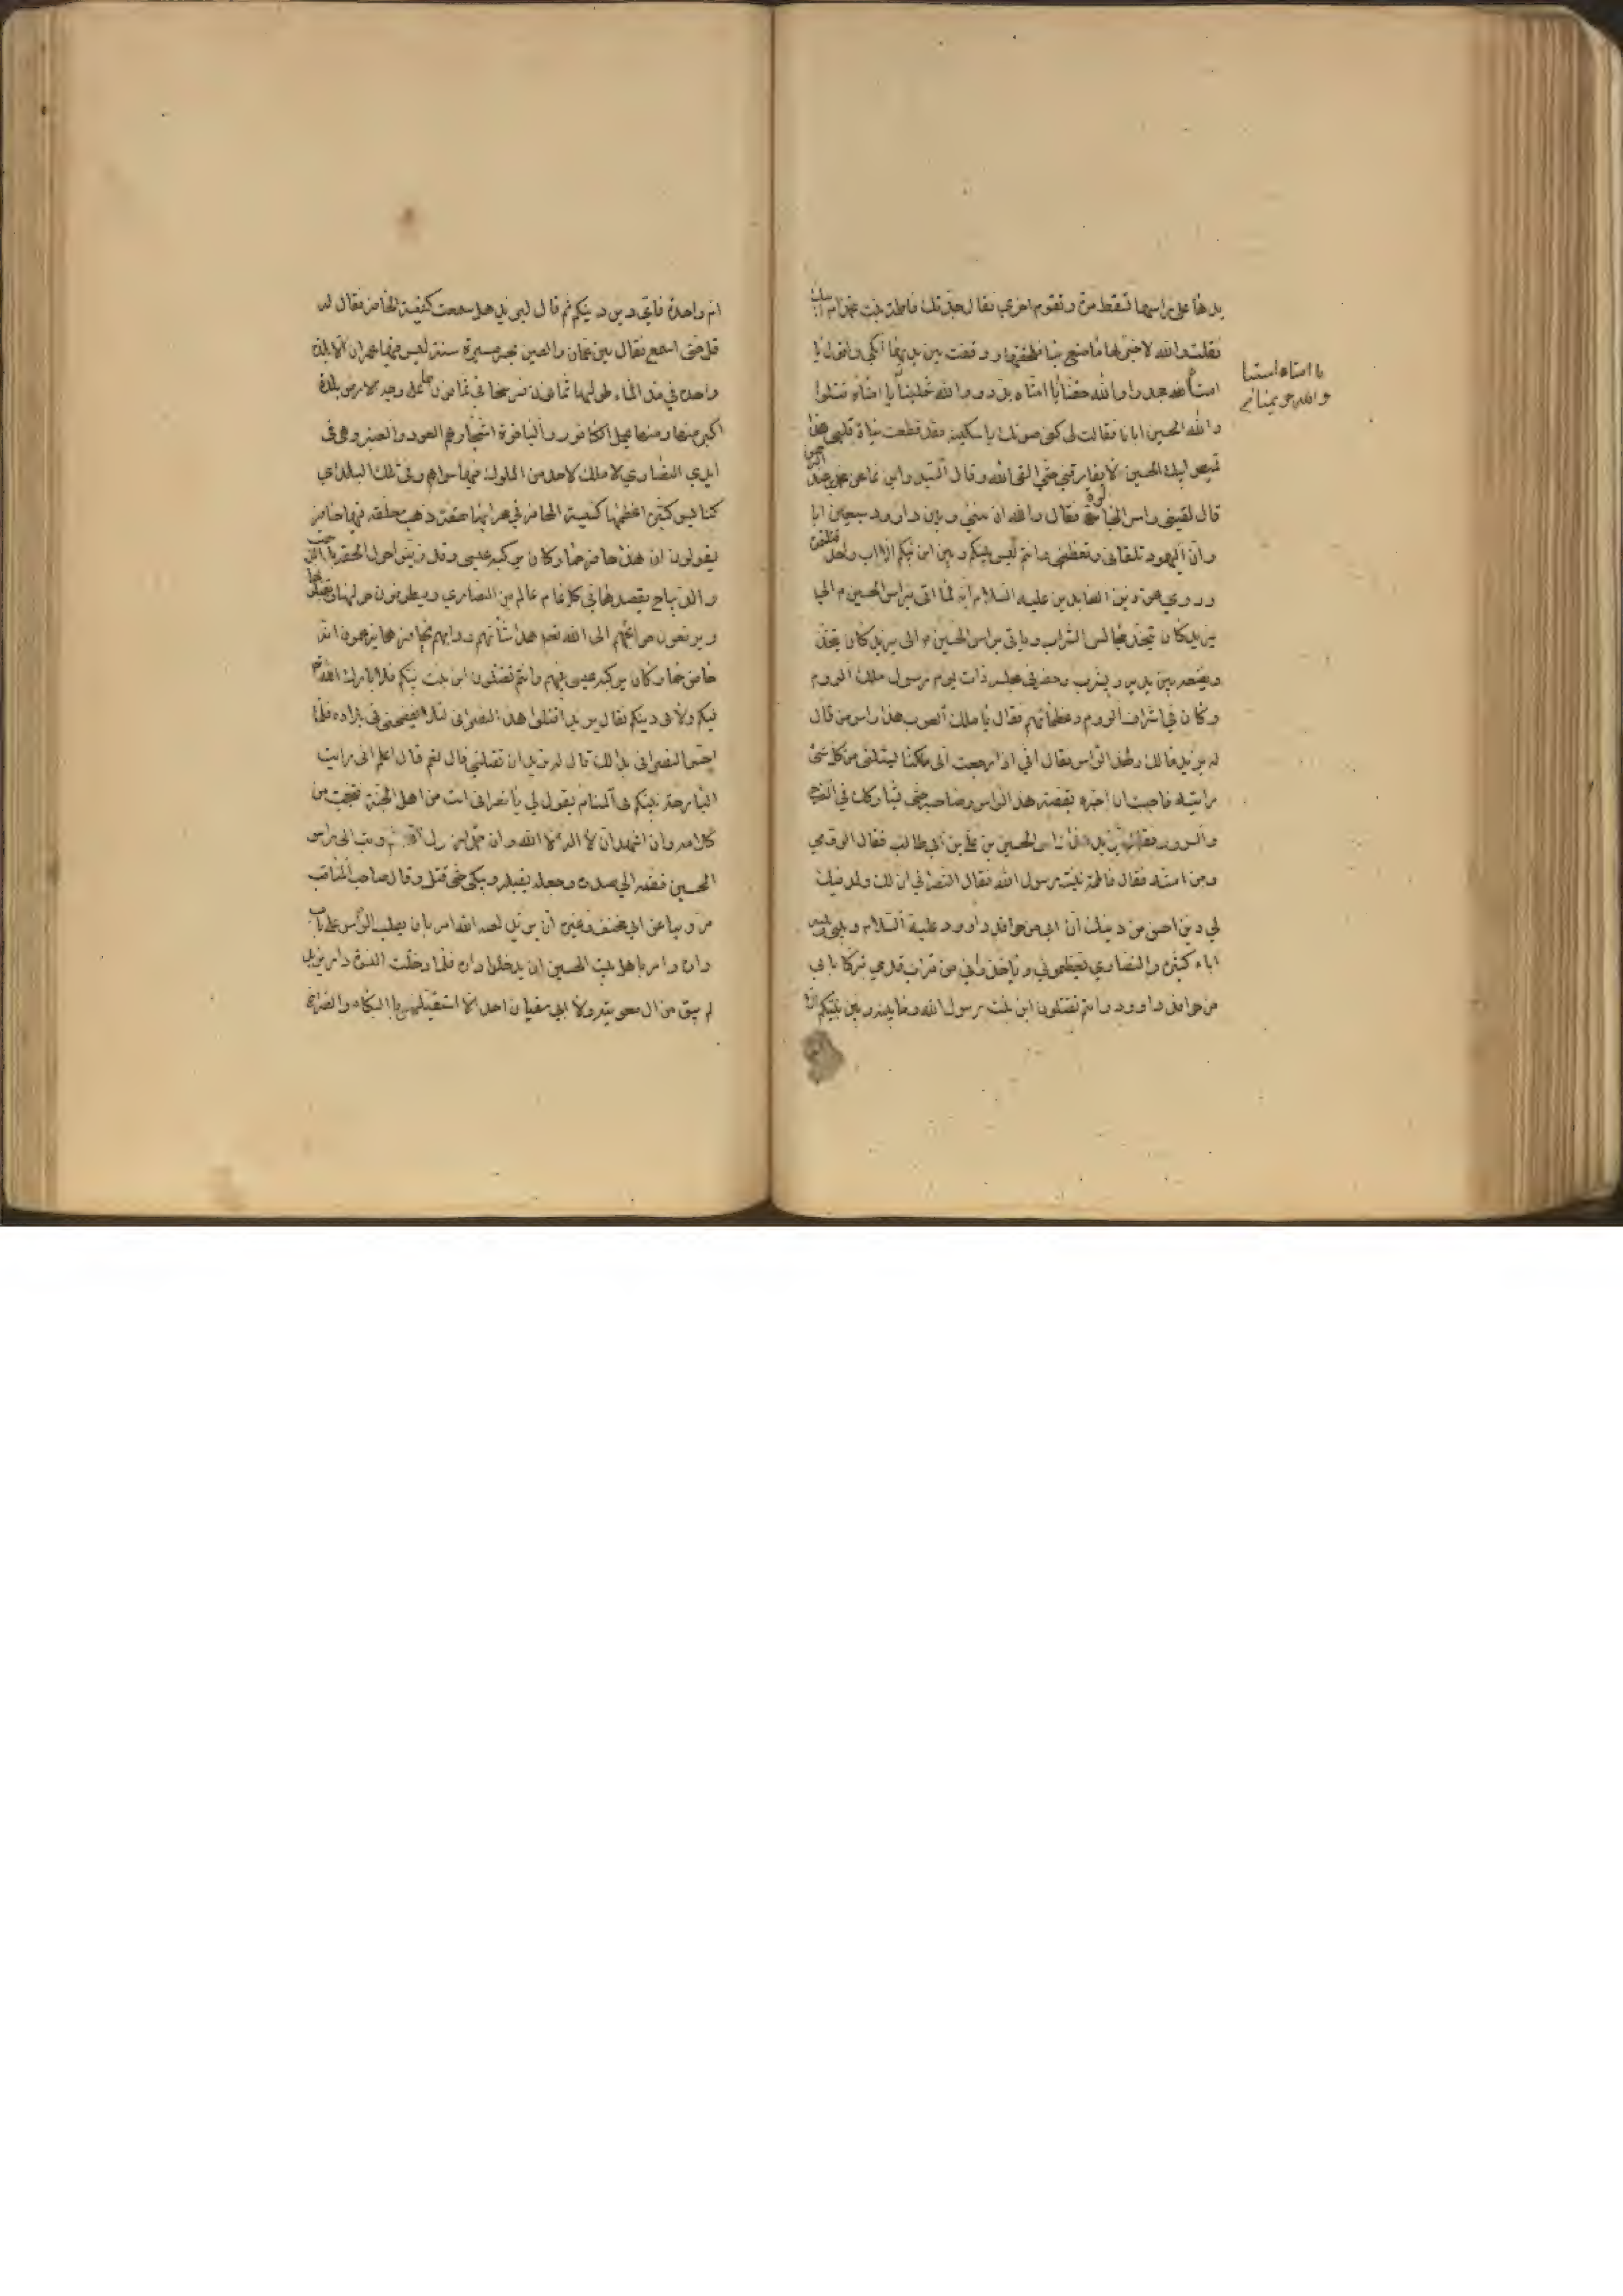 يدها على راسها فتسقط مرة وتقوم اخرى فقال جدتك فاطمة بنت محمد ام ابيك
فقلت والله لاخبرنها ما صنع بنا فلحقتها ووقفت بين يديها ابكي واقول يا
امتاه جحدوا والله حقنا يا امتاه بددوا والله شملنا يا امتاه قتلوا
يا امتاه استباحوا
والله حريمنا
والله الحسين ابانا فقالت لي كفي صوتك يا سكينة فقد قطعت نياط قلبي هذا
قميص ابيك الحسين لا يفارقني حتى القى الله وقال السيد وابن نما عن محمد بن عبد الرحمن
قال لقيني راس الجالوت فقال والله ان بيني وبين داوود سبعين ابا
وان اليهود تلقاني وتعظمني وانتم ليس بينكم وبين ابن نبيكم الا اب واحد قتلتموه
وروي عن زين العابدين عليه السلام انه لما اتي براس الحسين ع الى
يزيد كان يتخذ مجالس الشراب وياتي براس الحسين ع الى يزيد كان يتخذ
ويضعه بين يديه ويشرب وحضر في مجلسه ذات يوم رسول ملك الروم
وكان في اشراف الروم وعظمائهم فقال يا ملك العرب هذا راس من قال
له يزيد مالك ولهذا الراس فقال اني اذا رجعت الى ملكنا ليسئلني من كل شئ
رايته فاحببت ان اخبره بقصة هذا الراس وصاحبه حتى يشاركك في الفرح
والسرور فقال يزيد هذا راس الحسين بن علي بن ابي طالب فقال الرومي
ومن امه فقال فاطمة بنت رسول الله فقال النصراني اف لك ولدينك
لي دين احسن من دينك ان ابي من حوافد داوود عليه السلام وبيني وبينه
اباء كثيرة والنصارى تعظموني وياخذوني من تراب قدمي تبركا بابي
من حوافد داوود وانتم تقتلون ابن بنت رسول الله وما بينه وبين نبيكم الا
ام واحدة فاي دين دينكم ثم قال ليزيد هل سمعت كنيسة الحافر فقال له
قل حتى اسمع فقال بين عمان والصين بحر مسيرة سنة ليس فيها عمران الا بلدة
واحدة في مد الماء طولها ثمانون فرسخا في ثمانون ما على وجه الارض بلدة
اكبر منها ومنها يحمل الكافور والياقوت اشجارهم العود والعنبر وهي في
ايدي النصارى لا ملك لاحد من الملوك فيها سواهم وفي تلك البلدة
كنايس كثيرة اعظمها كنيسة الحافر في محرابها حقة ذهب معلقة فيها حافر
يقولون ان هذا حافر حمار كان يركبه عيسى وقد زينوا حول الحقة بالذهب
والديباج يقصدها في كل عام عالم من النصارى ويطوفون حولها ويقبلونها
ويرفعون حوائجهم الى الله تعالى هذا شأنهم ودابهم بحافر حمار يزعمون انه
حافر حمار كان يركبه عيسى نبيهم وانتم تقتلون ابن بنت نبيكم فلا بارك الله
فيكم ولا في دينكم فقال يزيد اقتلوا هذا النصراني لئلا يفضحني في بلاده فلما
احس النصراني بذلك قال له تريد ان تقتلني قال نعم قال اعلم اني رايت
البارحة نبيكم في المنام يقول لي يا نصراني انت من اهل الجنة فتعجبت من
كلامه وان اشهد ان لا اله الا الله وان محمدا رسول الله ثم وثب الى راس
الحسين فضمه الى صدره وجعل يقبله ويبكي حتى قتل وقال صاحب المناقب
وروينا عن ابي مخنف وغيره ان يزيد لعنه الله امر بان يصلب الراس على باب
داره وامر باهل بيت الحسين ان يدخلوا داره فلما دخلت النسوة دار يزيد
لم يبق من ال معوية ولا ابي سفيان احد الا استقبلهن بالبكاء والصراخ